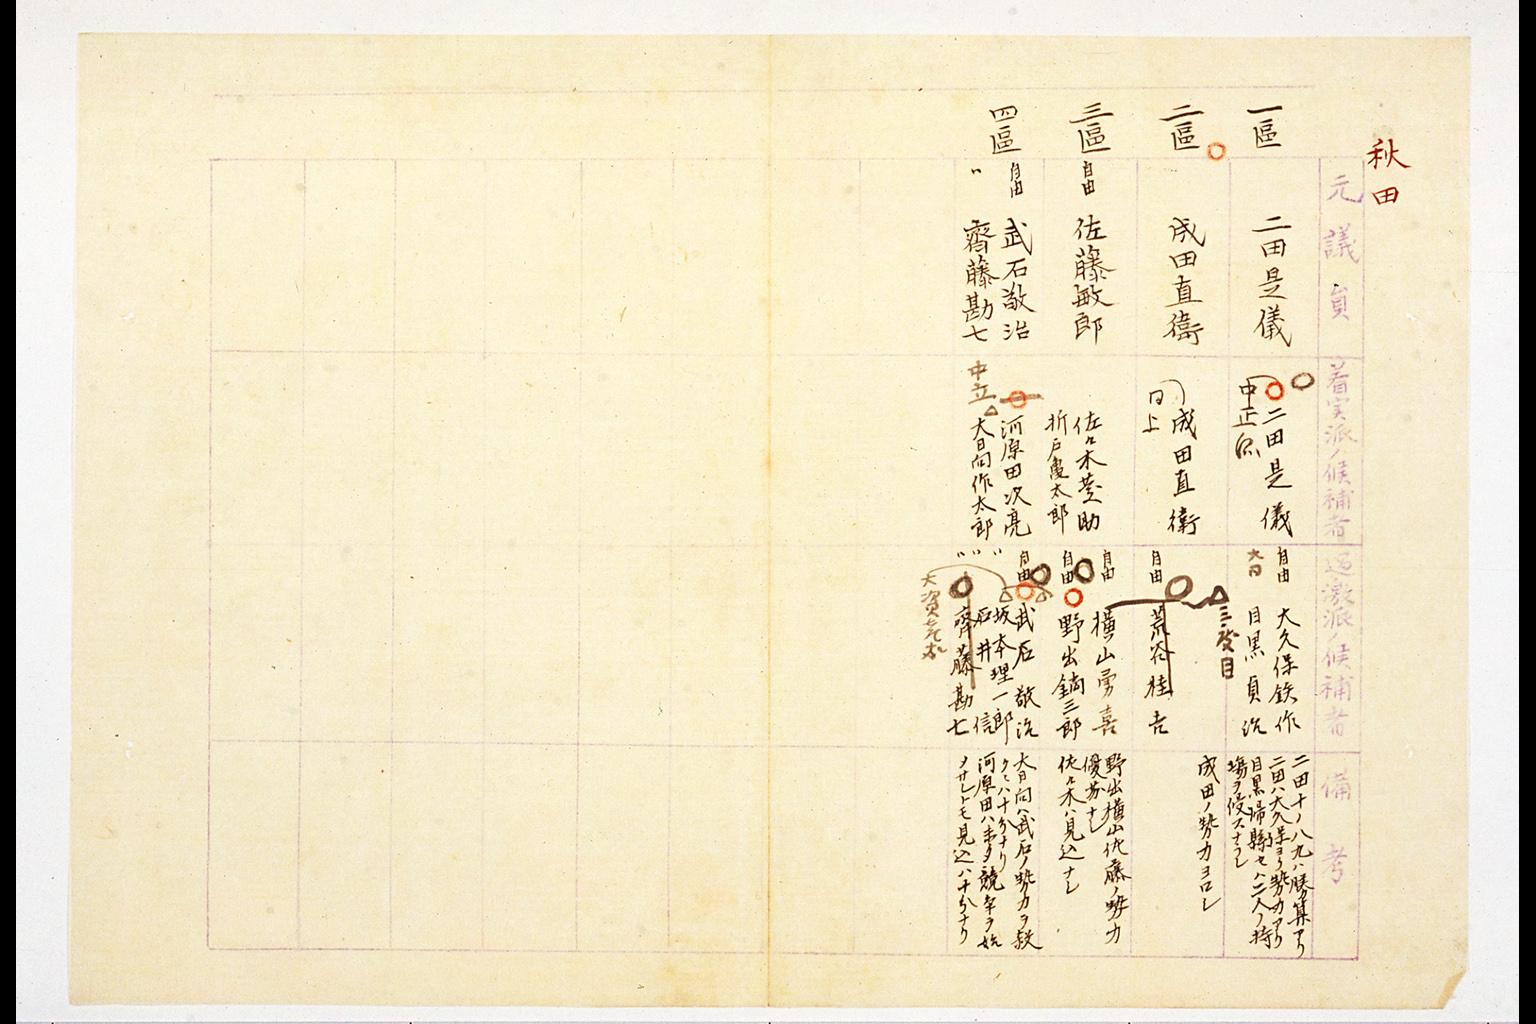 秋田
元議員
着実派ノ候補者
過激派ノ候補者
備考
一區
二田是儀
中正派
二田是儀
自由
大久保鉄作
大同
目黒貞治
二田十ノ八九ハ勝算アリ
二田ハ大久保ヨリ勢力アリ
目黒帰縣セハ二人ノ持
場ヲ侵スナラン
二區
成田直衞
同上
成田直衞
自由
荒谷桂吉
三度目
成田ノ勢力ヨロシ
三區
自由
佐藤敏郎
佐々木 助
折戸亀太郎
自由
横山勇喜
自由
野出鏑三郎
野出横山佐藤ノ勢力
優劣ナシ
佐々木ハ見込ナシ
四區
自由
武石敬治
〃
齊藤勘七
河原田次亮
中立
大日向作太郎
自由
武石敬治
〃
坂本理一郎
〃
石井 信
〃
齊藤勘七
大日向ハ武石ノ勢力ヲ殺
クニハ十分ナリ
河原田ハ未タ競争ヲ始
メサレトモ見込ハ十分ナリ